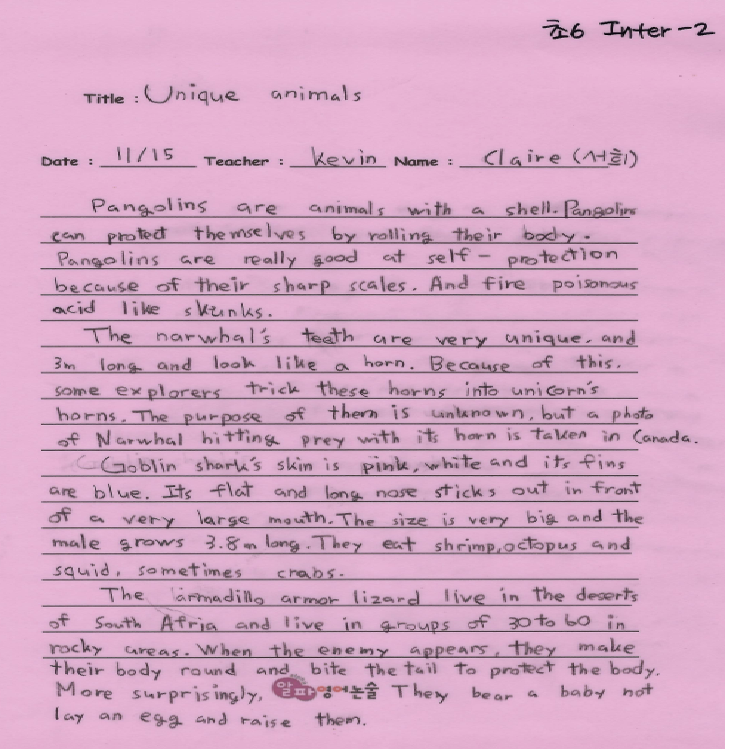 초6 Inter-2
Title : Unique animals
Date : 11/15 Teacher : Kevin Name : Claire (서희)
Pangolins are animals with a shell. Pangolins
can protect themselves by rolling their body.
Pangolins are really good at self-protection
because of their sharp scales. And fire poisonous
acid like skunks.
The narwhal's teeth are very unique. and
3m long and look like a horn. Because of this.
some explorers trick these horns into unicorn's
horns. The purpose of them is unknown, but a photo
of Narwhal hitting prey with its horn is taken in Canada.
Goblin shark's skin is pink, white and its fins
are blue. Its flat and long nose sticks out in front
of a very large mouth. The size is very big and the
male grows 3.8m long. They eat shrimp, octopus and
squid, sometimes crabs.
The armadillo armor lizard live in the deserts
of South Afria and live in groups of 30 to 60 in
rocky areas. When the enemy appears, they make
their body round and bite the tail to protect the body.
More surprisingly, 알파영어논술 They bear a baby not
lay an egg and raise them.